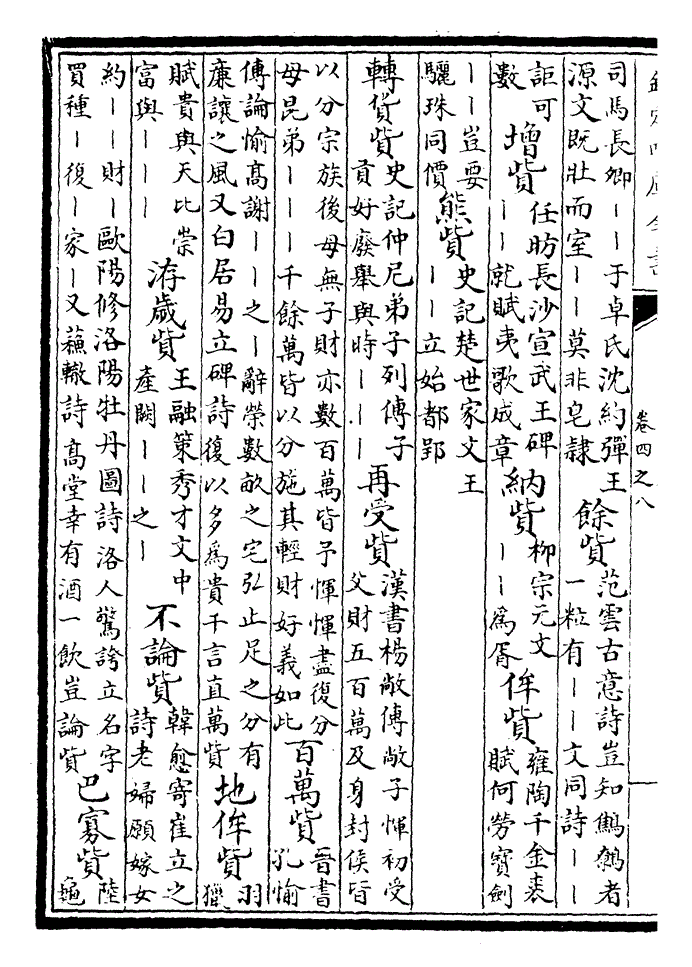 欽定四庫全書
卷四之八
司馬長卿丨丨于卓氏沈約彈王
源文既壯而室丨丨莫非皂隸
餘貲
范雲古意詩豈知鷦鷯者
一粒有丨丨文同詩丨丨
詎可
數
增貲
任昉長沙宣武王碑
丨丨就賦夷歌成章
納貲
柳宗元文
丨丨為胥
侔貲
雍陶千金裘
賦何勞寶劍
丨丨豈要
驪珠同價
熊貲
史記楚世家文王
丨丨立始都郢
轉貨貲
史記仲尼弟子列傳子
貢好廢舉與時丨丨丨
再受貲
漢書楊敞傳敞子惲初受
父財五百萬及身封侯皆
以分宗族後母無子財亦數百萬皆予惲惲盡復分
母昆弟丨丨丨千餘萬皆以分施其輕財好義如此
百萬貲
晉書
孔愉
傳論愉高謝丨丨之丨辭榮數畝之宅弘止足之分有
廉讓之風又白居易立碑詩復以多為貴千言直萬貲
地侔貲
羽
獵
賦貴與天比崇
富與丨丨丨
洊歲貲
王融策秀才文中
產闕丨丨之丨
不論貲
韓愈寄崔立之
詩老婦願嫁女
約丨丨財丨歐陽修洛陽牡丹圖詩洛人驚誇立名字
買種丨復丨家丨又蘇轍詩高堂幸有酒一飲豈論貲
巴寡貲
陸
龜